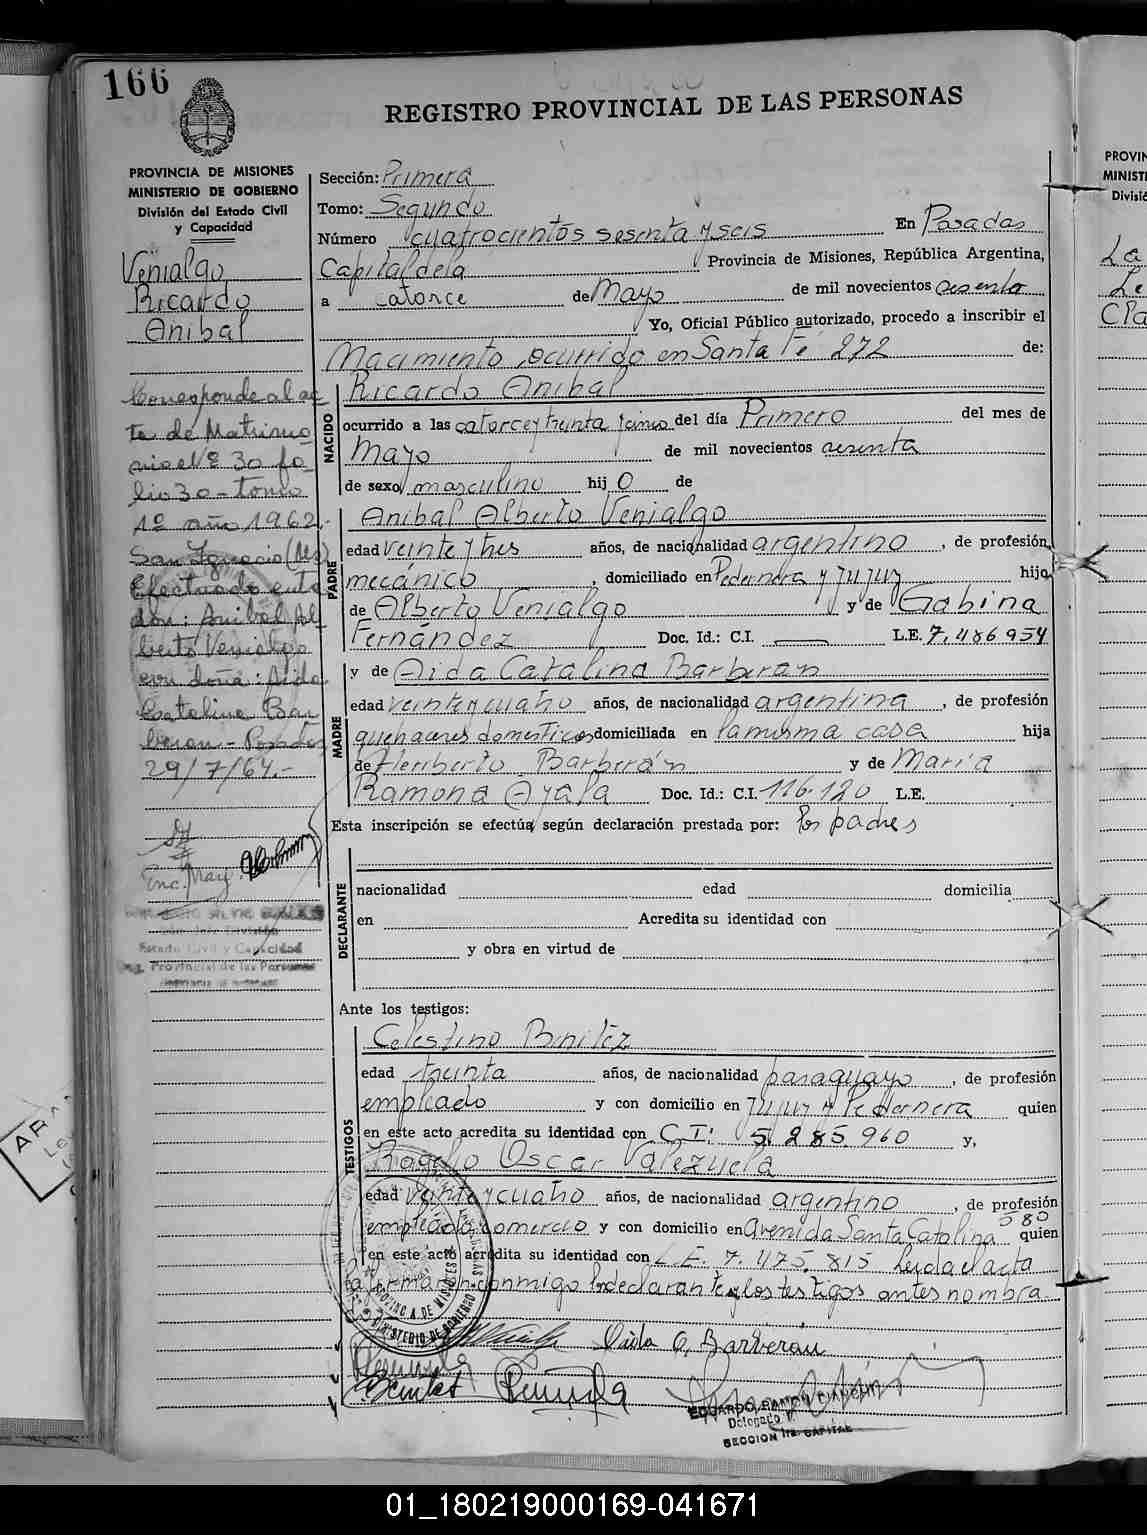 166
REGISTRO PROVINCIAL DE LAS PERSONAS
PROVINCIA DE MISIONES
MINISTERIO DE GOBIERNO
División del Estado Civil
y Capacidad
Venialgo
Ricardo
Anibal
Corresponde al ac
ta de Matrimo
nio el Nº 30 fo-
lio 30 - tomo
1º año 1962.-
San Ignacio (Mes)
Efectuado entre
don: Anibal Al-
berto Venialgo
con doña: Aida
Catalina Bar
beran - Posadas
29/7/64.-
Enc. May.
Estado Civil y Capacidad
Reg. Provincial de las Personas
Sección: Primera
Tomo: Segundo
Número cuatrocientos sesenta y seis En Posadas
Capital de la Provincia de Misiones, República Argentina,
a catorce de Mayo de mil novecientos sesenta
Yo, Oficial Público autorizado, procedo a inscribir el
Nacimiento ocurrido en Santa Fé 272 de:
NACIDO
Ricardo Anibal
ocurrido a las catorce y treinta y cinco del día Primero del mes de
Mayo de mil novecientos sesenta
de sexo masculino hij o de
PADRE
Anibal Alberto Venialgo
edad veinte y tres años, de nacionalidad argentino, de profesión
mecánico, domiciliado en Pedernera y Jujuy hijo
de Alberto Venialgo y de Gabina
Fernández Doc. Id.: C.I. — L.E. 7.486954
MADRE
y de Aida Catalina Barberan
edad veinte y cuatro años, de nacionalidad argentina, de profesión
quehaceres domesticos domiciliada en la misma casa hija
de Heriberto Barberán y de María
Ramona Ayala Doc. Id.: C.I. 116.120 L.E.
Esta inscripción se efectúa según declaración prestada por: los padres
DECLARANTE
nacionalidad edad domicilia
en Acredita su identidad con
y obra en virtud de
Ante los testigos:
TESTIGOS
Celestino Benitez
edad treinta años, de nacionalidad paraguayo, de profesión
empleado y con domicilio en Jujuy y Pedernera quien
en este acto acredita su identidad con C.I: 5.285.960 y,
Rogelio Oscar Valezuela
edad veinte y cuatro años, de nacionalidad argentino, de profesión
empleado comercio y con domicilio en Avenida Santa Catalina 580 quien
en este acto acredita su identidad con L.E. 7.475.815 Leida el acta
la firman conmigo los declarantes y los testigos antes nombra
Aida C. Barberán
Benitez
EDUARDO RAMON
Delegado
SECCION 1ra. CAPITAL
PROVIN
MINISTE
Divisió
La
01_180219000169-041671